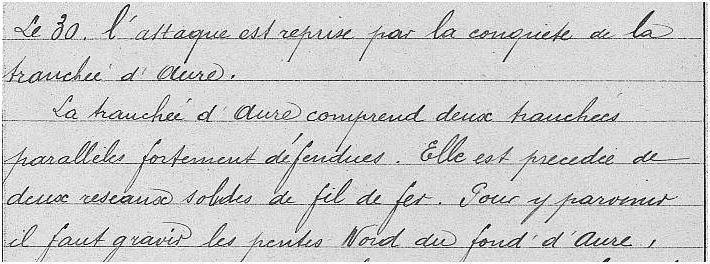 Le 30. l'attaque est reprise par la conquête de la
tranchée d'Aure.
La tranchée d'Aure comprend deux tranchées
parallèles fortement défendues. Elle est precedée de
deux reseaux solides de fil de fer. Pour y parvenir
il faut gravir les pentes Nord du fond d'Aure,